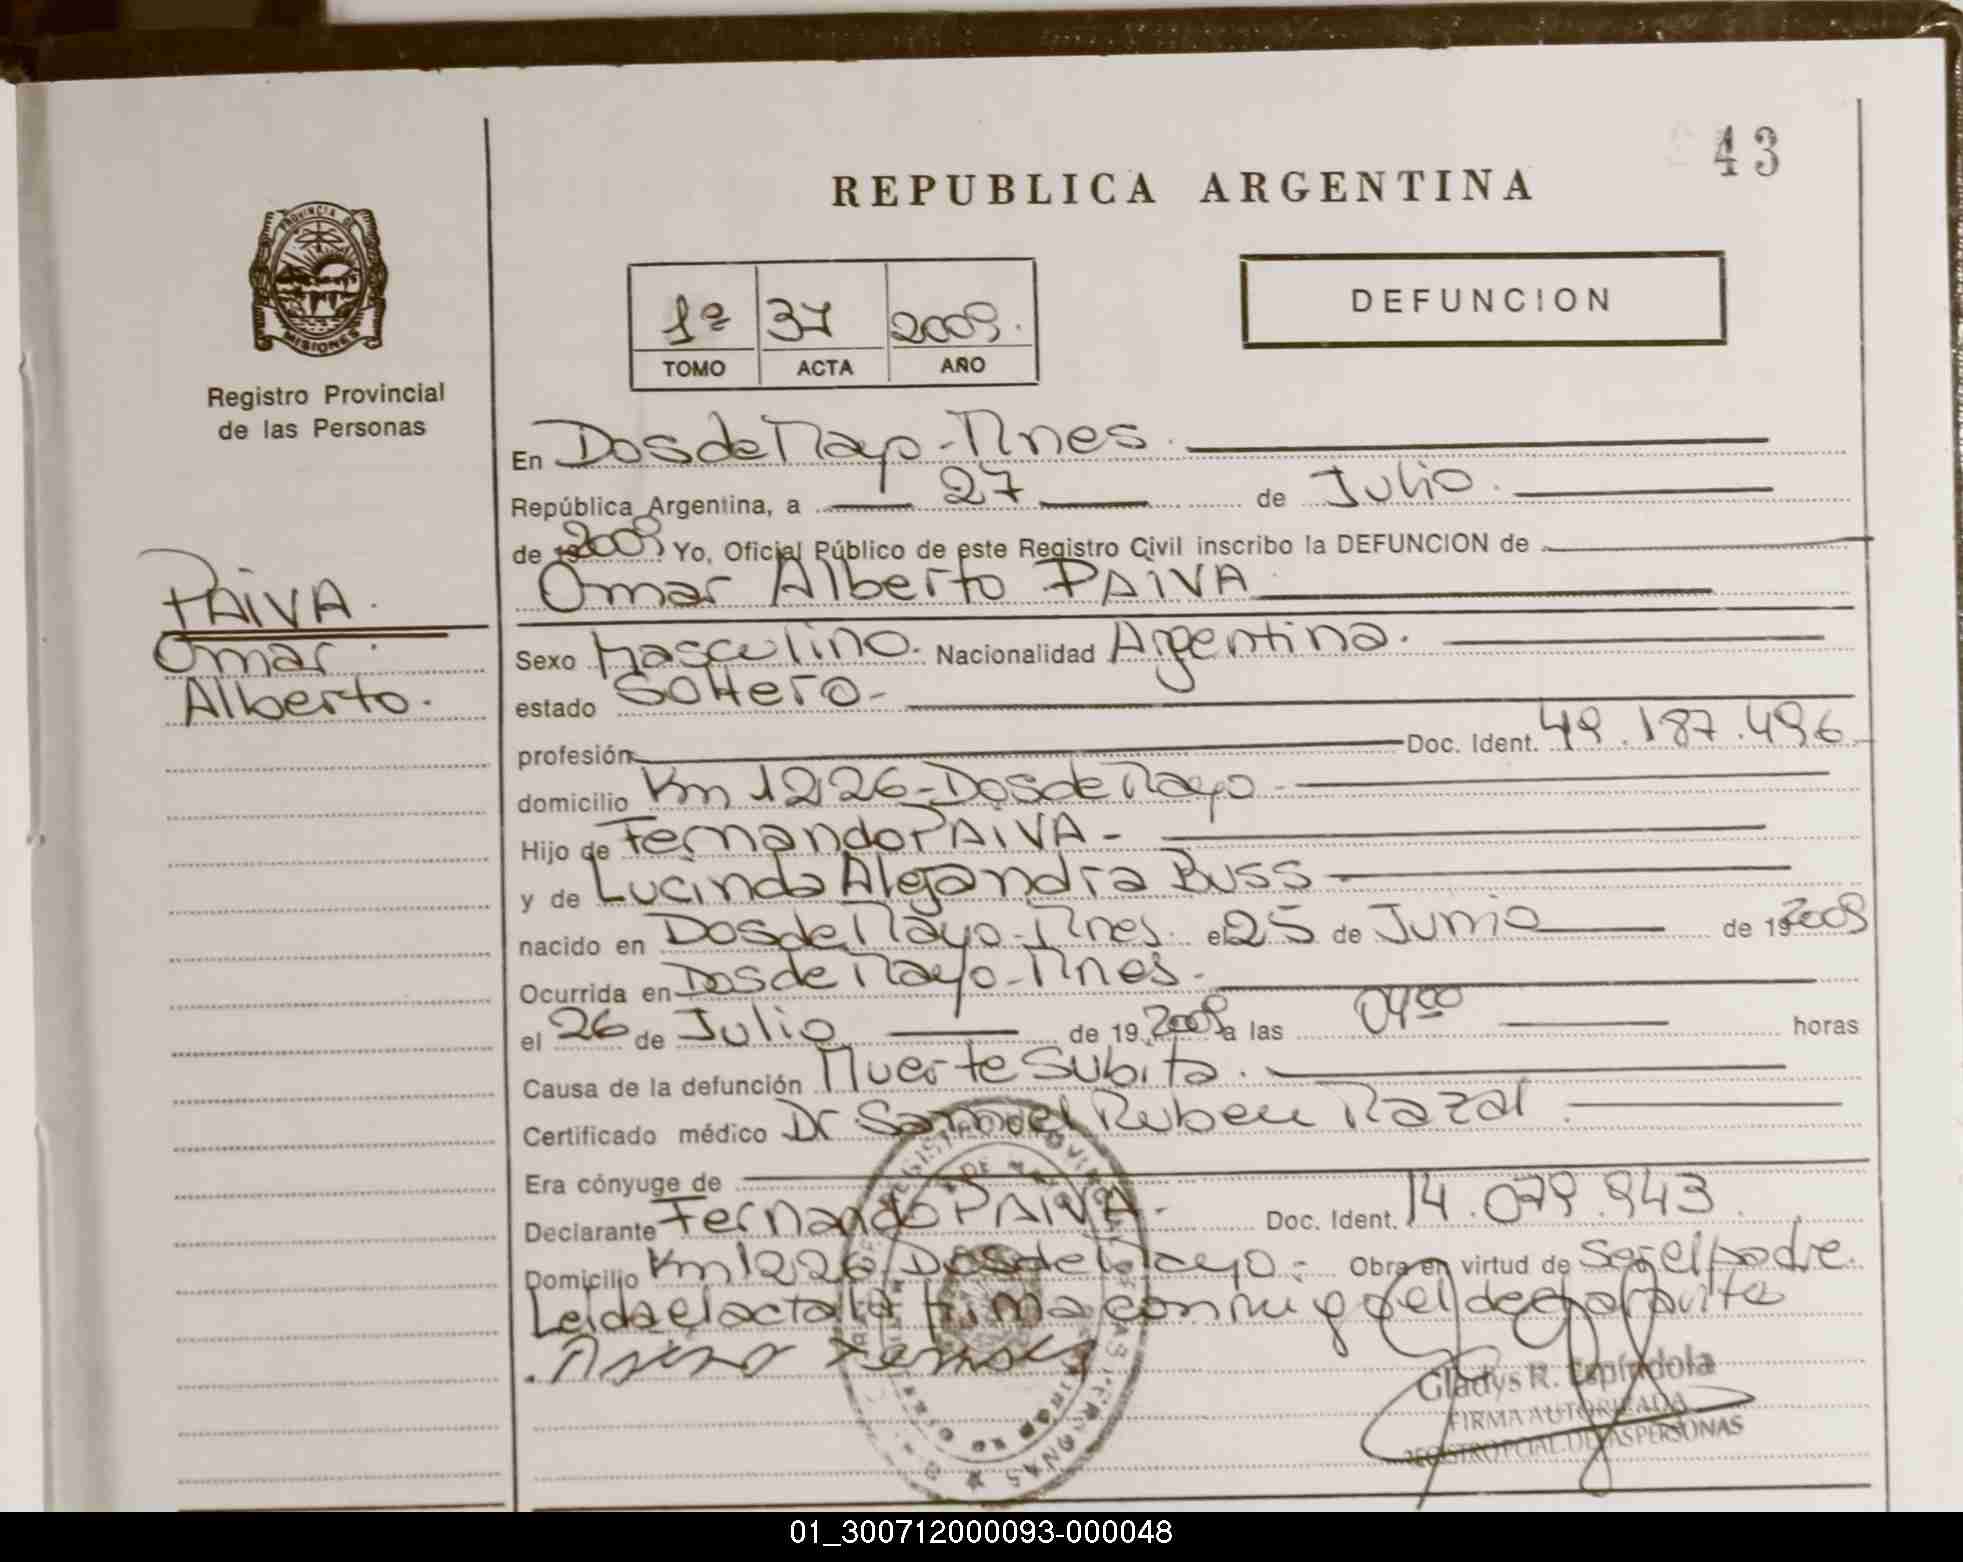 43
REPUBLICA ARGENTINA
PROVINCIA DE
MISIONES
Registro Provincial
de las Personas
1º 37 2009.
TOMO ACTA AÑO
DEFUNCION
En Dos de Mayo - Mnes.
República Argentina, a 27 de Julio.
de 2009 Yo, Oficial Público de este Registro Civil inscribo la DEFUNCION de
Omar Alberto PAIVA.
PAIVA.
Omar
Alberto.
Sexo Masculino. Nacionalidad Argentina.
estado Soltero-
profesión Doc. Ident. 49.187.496
domicilio Km 1226-Dos de Mayo-
Hijo de Fernando PAIVA-
y de Lucinda Alejandra Buss
nacido en Dos de Mayo-Mnes. el 25 de Junio de 192009
Ocurrida en Dos de Mayo-Mnes.
el 26 de Julio de 19 2009 a las 04⁰⁰ horas
Causa de la defunción Muerte Subita.
Certificado médico Dr Samuel Ruben Mazal
Era cónyuge de
Declarante Fernando PAIVA- Doc. Ident. 14.079.943
Domicilio Km 1226 Dos de Mayo- Obra en virtud de Ser el padre.
Leida el acta la firma conmigo el declarante
Gladys R. Espíndola
FIRMA AUTORIZADA
REGISTRO PCIAL. DE LAS PERSONAS
01_300712000093-000048